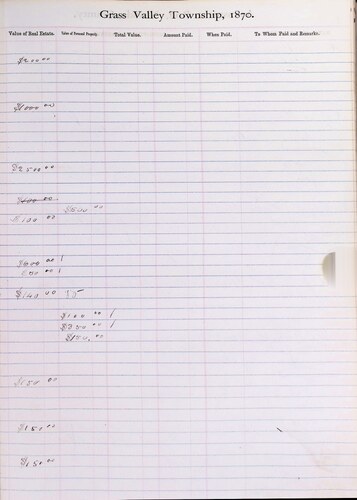 Grass Valley Township, 1870.
Value of Real Estate. Value of Personal Property. Total Value. Amount Paid. When Paid. To Whom Paid and Remarks.
$200 00
$1000 00
$2500 00
$100 00
$600 00 /
$50 00 /
$140 00
$100 00 /
$350 00 /
$150 00
$150 00
$150 00